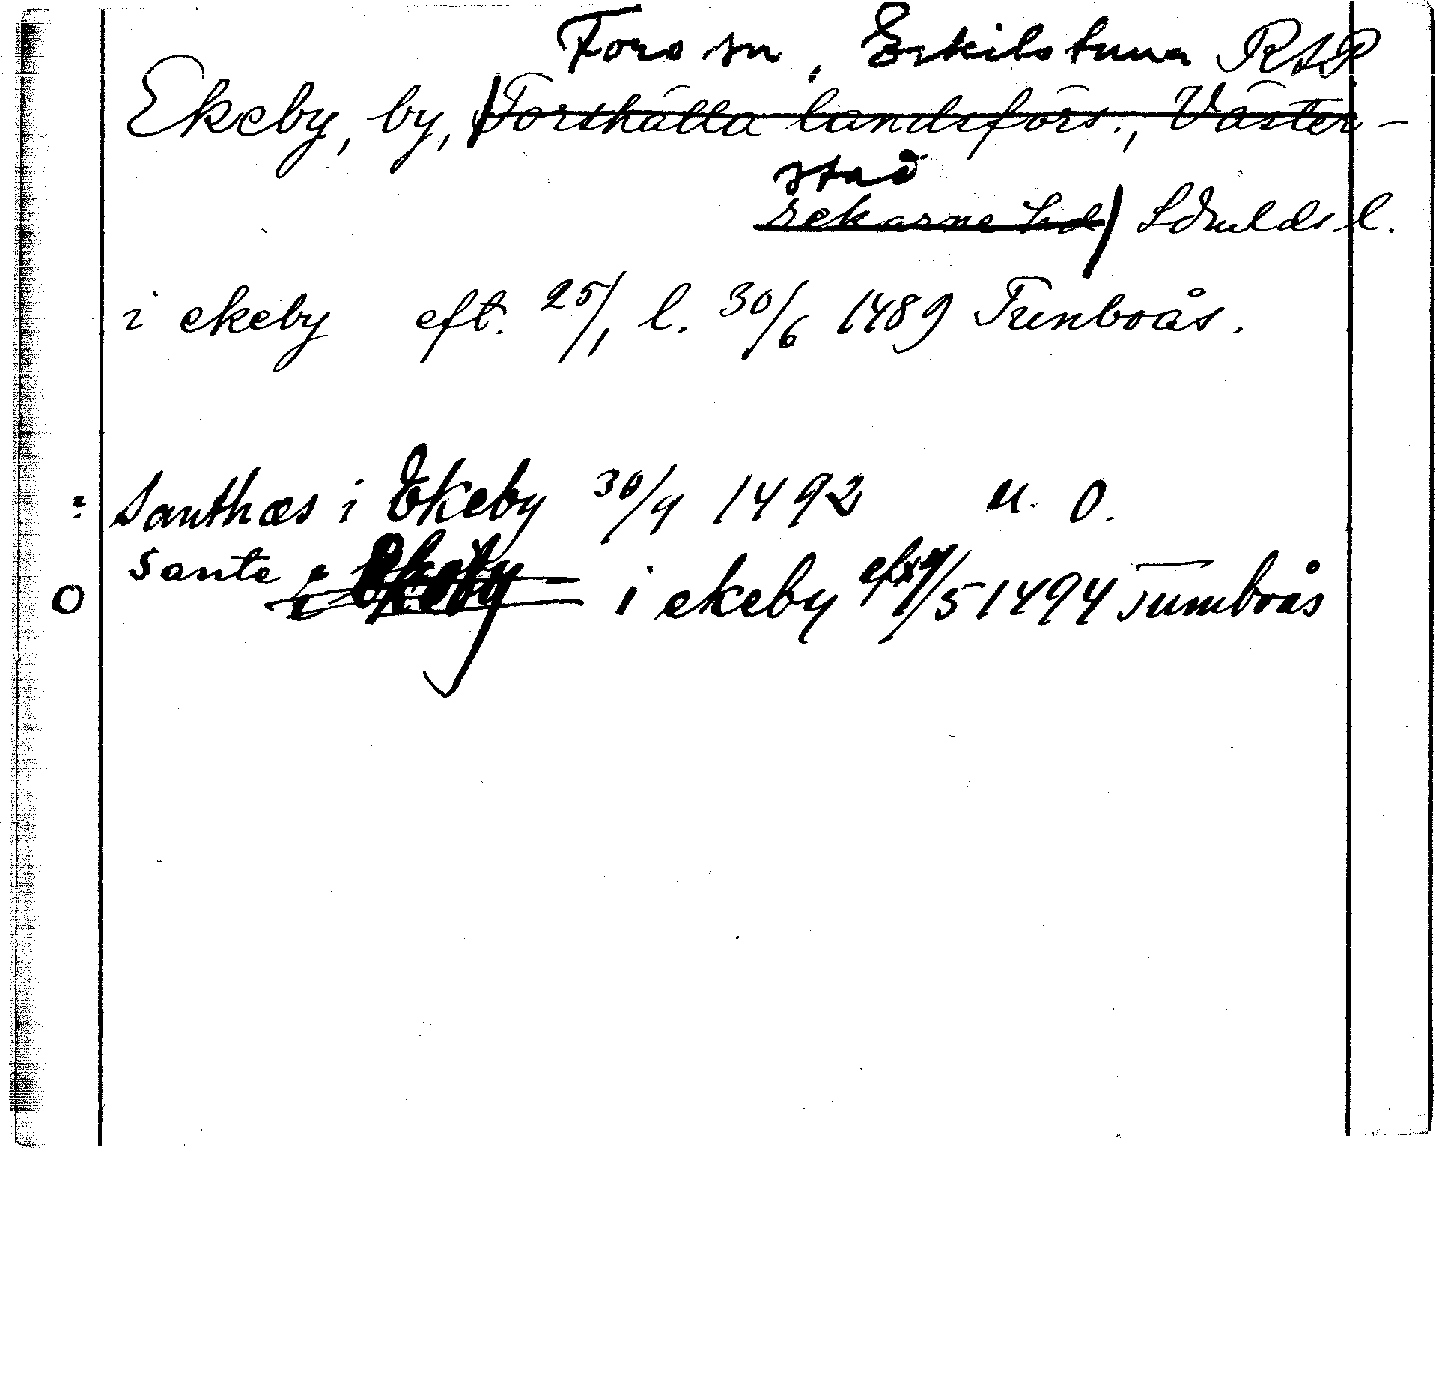 Fors sn, Eskilstuna RAP
Ekeby, by, (Torshälla landsförs., Väster-
stad
rekarne hd) Södmlds l.
i ekeby eft. 25/1 l. 30/6 1489 Tunboås.
= Santhæs i Ekeby 30/4 1492 u. O.
O Sante i Ekeby i ekeby 1494 Tumboås